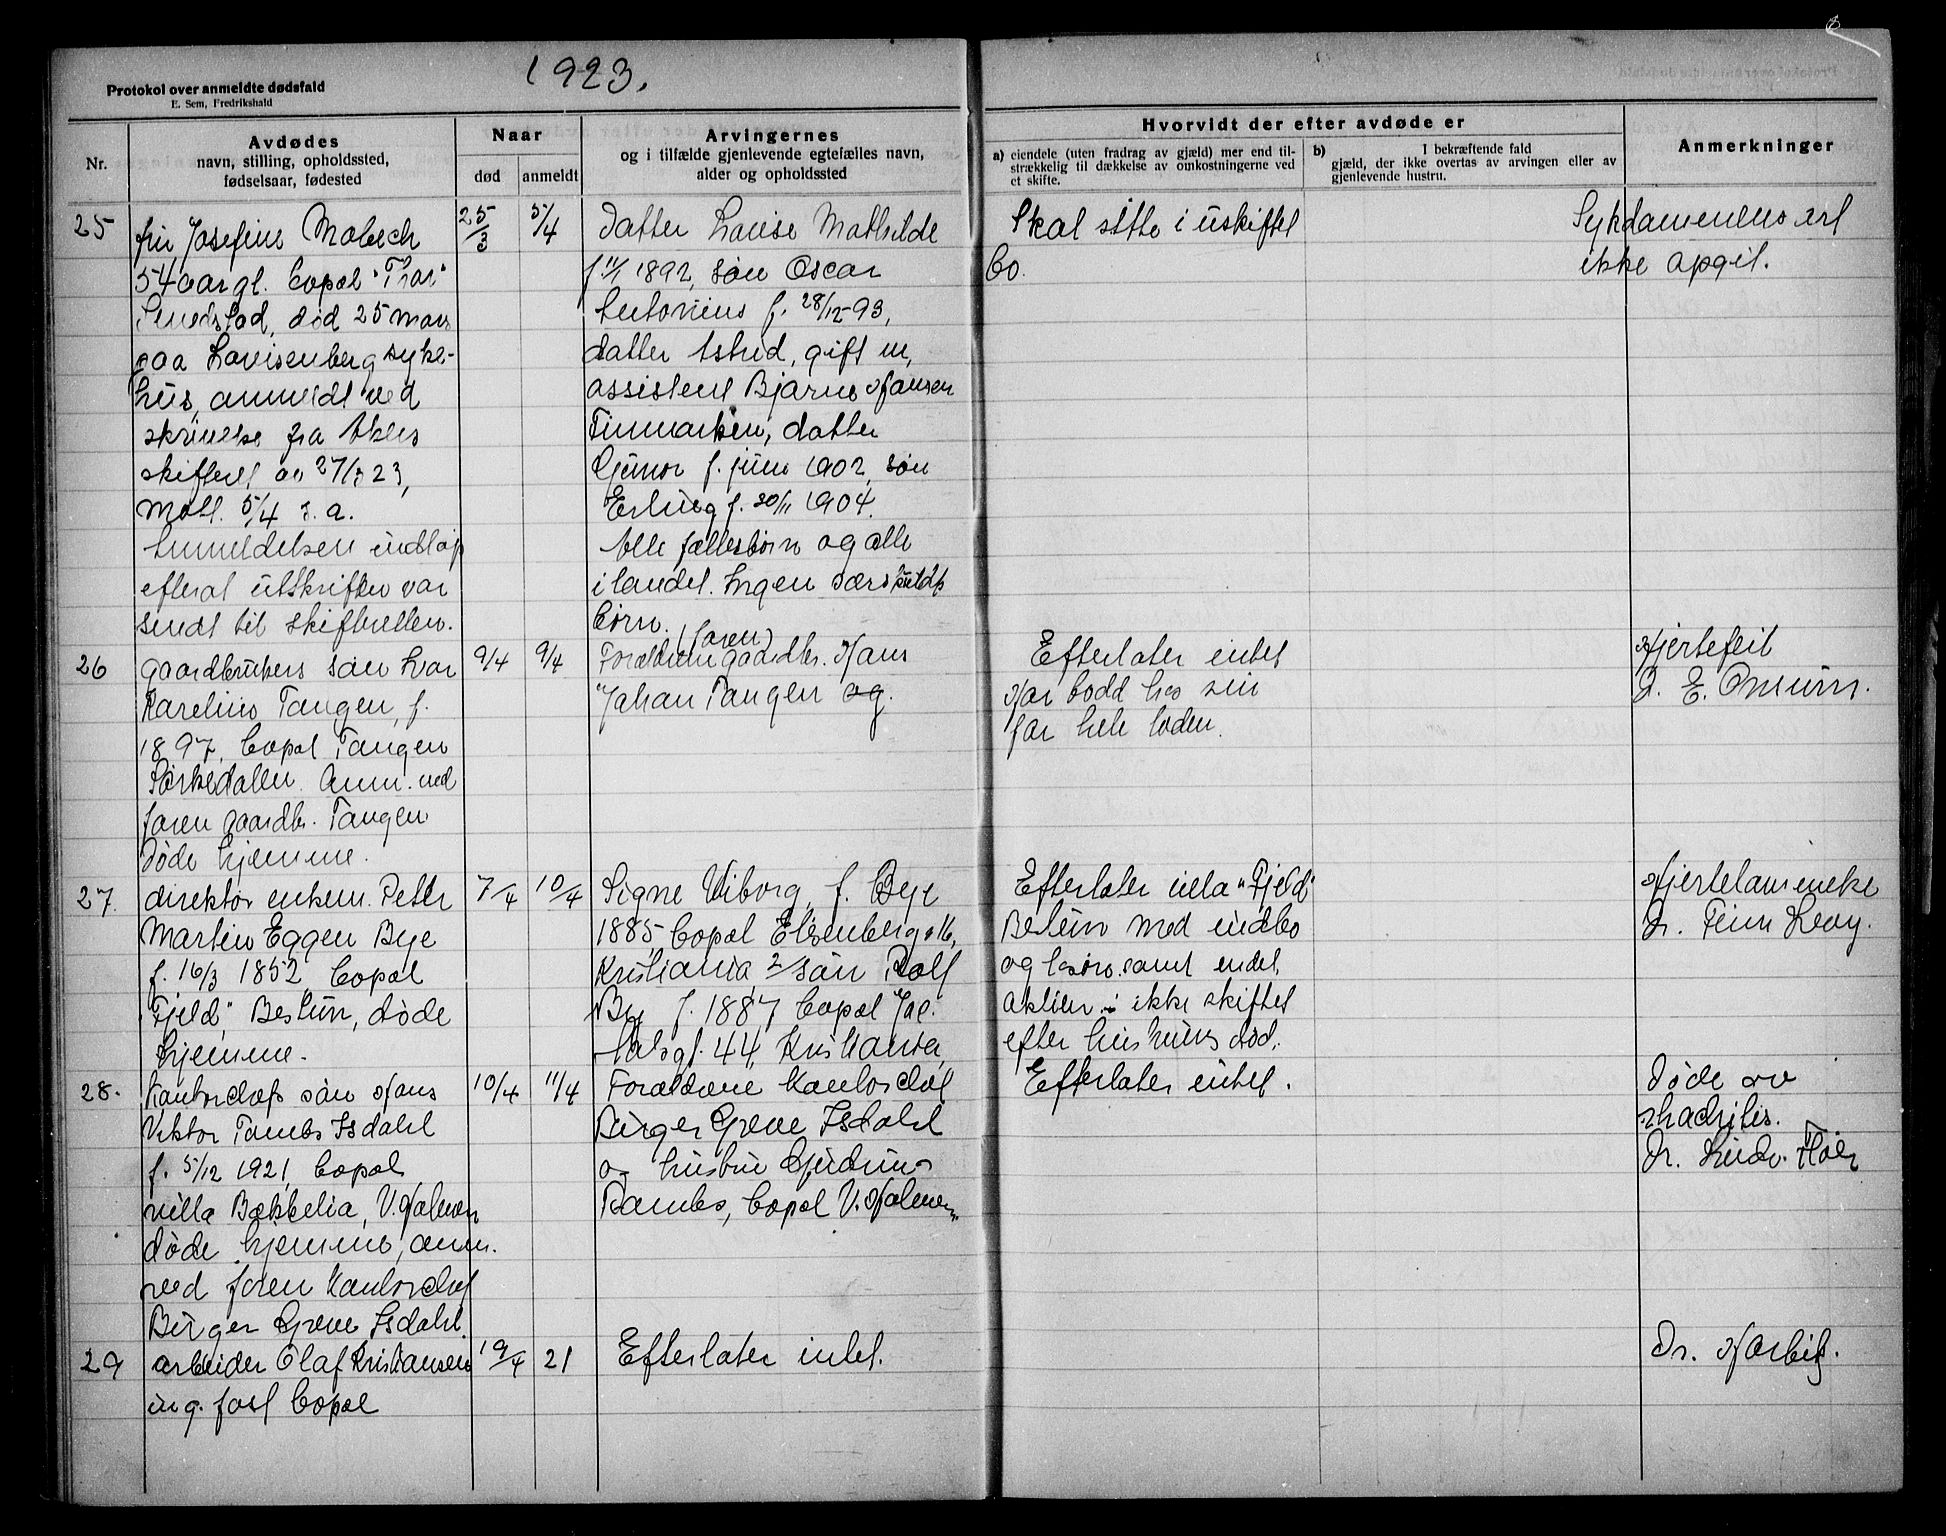 1923.
Protokol over anmeldte dødsfald
E. Sem, Fredrikshald
Nr.
Avdødes
navn, stilling, opholdssted,
fødselsaar, fødested
Naar
død
anmeldt
Arvingernes
og i tilfælde gjenlevende egtefælles navn,
alder og opholdssted
Hvorvidt der efter avdøde er
a) eiendele (uten fradrag av gjæld) mer end til-
strækkelig til dækkelse av omkostningerne ved
et skifte.
b) I bekræftende fald
gjæld, der ikke overtas av arvingen eller av
gjenlevende hustru.
Anmerkninger
25
fru Josefine Mobech
54 aar gl. bopæl "Thor"
død 25 mars
paa Lovisenberg syke-
hus, anmeldt ved
skrivelse fra Akers
skifteret av 27/3 23,
Mott. 5/4 s. a.
Anmeldelsen indløp
efterat utskriften var
sendt til skifteretten.
25/3
5/4
Datter Louise Mathilde
f 11/1 1892, søn Oscar
Antonius f. 28/12-93,
datter Astrid, gift m,
assistent Bjarne Hansen
Finmarken, datter
Gunvor f. juni 1902, søn
Erling f. 20/11 1904.
Alle fællesbørn og alle
i landet. Ingen særskildte
børn.
Skal sitte i uskiftet
bo.
Sykdommens art
ikke opgit.
26
gaardbrukers søn Ivar
Karelius Tangen, f.
1897, bopæl Tangen
Sørkedalen. Anm. ved
faren gaardbr. Tangen
Døde hjemme.
9/4
9/4
(faren)
Forældrene gaardbr. Hans
Johan Tangen og.
Efterlater intet
Har bodd hos sin
far hele tiden.
Hjertefeil
D. E.
27.
direktør enkem. Peter
Martin Eggen Bye
f. 16/3 1852, bopæl
"Fjeld", Bestun, døde
hjemme.
7/4
10/4
Signe Viborg, f. Bye
1885 bopæl Eisenbergv 16,
Kristiania 2/ søn Rolf
Bye f. 1887 bopæl Jac.
Aalsgt. 44 Kristiania
Efterlater villa "Fjeld"
Bestun med indbo
og løsøre samt endel
aktier. - ikke skiftet
efter hustruens død.
Hjertelammelse
Dr. Finn Levy.
28.
Kontorchefs søn Hans
Viktor Tambs Isdahl
f. 5/12 1921, bopæl
villa Bækkelia, V. Holmen
døde hjemme, anm.
ved faren Kontorchef
Birger Greve Isdahl.
10/4
11/4
Forældrene Kontorchef
Birger Greve Isdahl
og hustru Gudrun
Tambs, bopæl V. Holmen
Efterlater intet.
Døde av
rhachitis.
Dr. Ludv.
29
arbeider Olaf Kristiansen
ing. fast bopæl
19/4
21
Efterlater intet.
Dr. Harbitz.